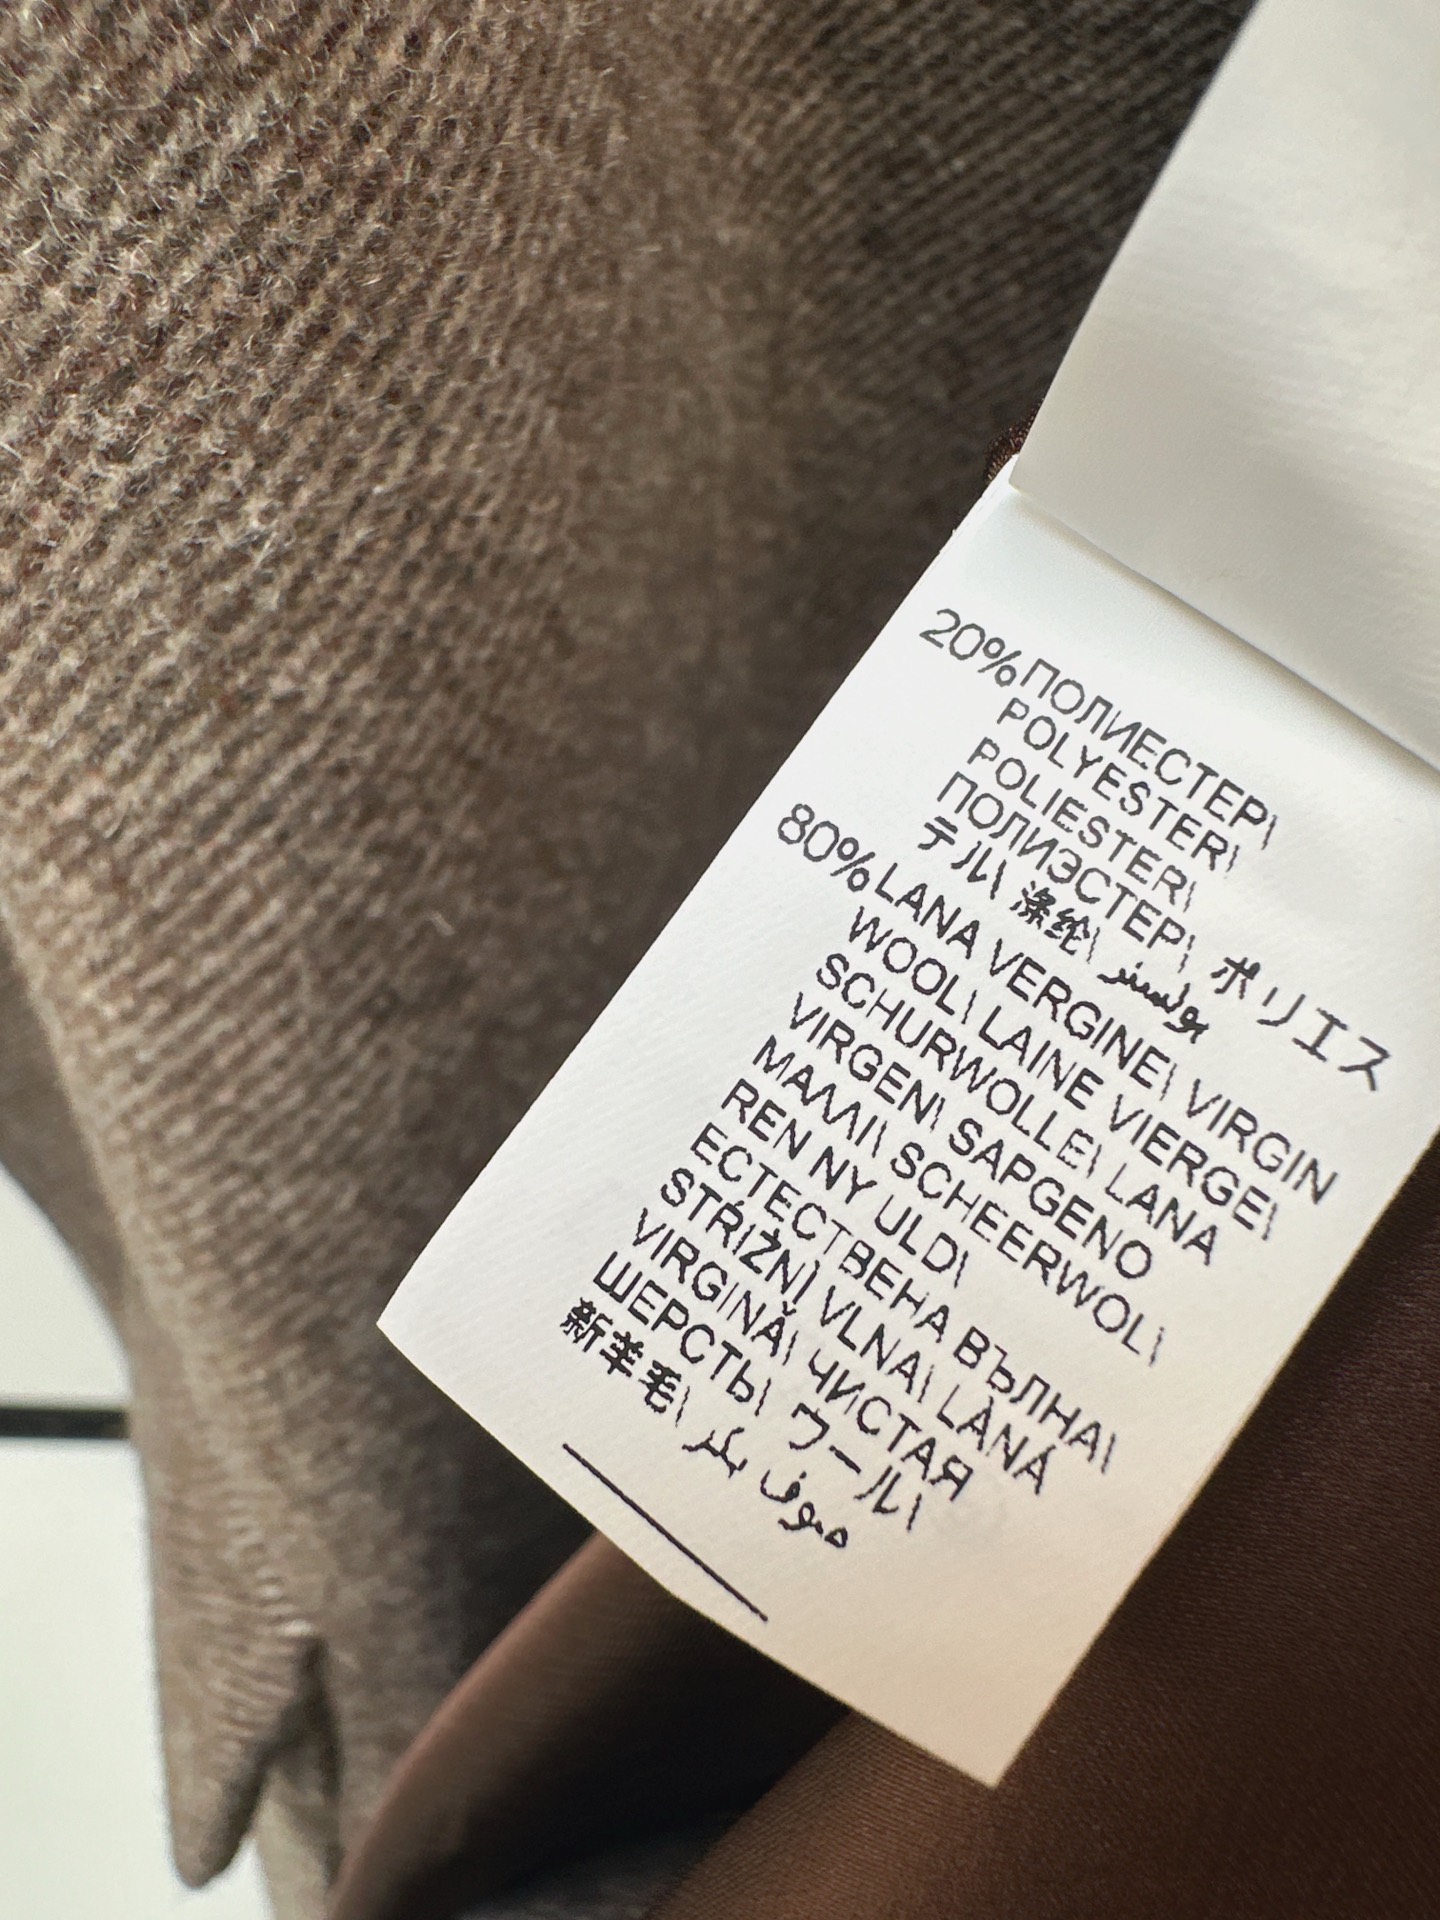 20%ПОЛИЕСТЕР\
POLYESTER\
POLIESTER\
ПОЛИЭСТЕР\ ポリエス
テル\ 涤纶\ بوليستر
80%LANA VERGINE\ VIRGIN
WOOL\ LAINE VIERGE\
SCHURWOLLE\ LANA
VIRGEN\ SAPGENO
ΜΑΛΛΙ\ SCHEERWOL\
REN NY ULD\
ЕСТЕСТВЕНА ВЪЛНА\
STŘIŽNÍ VLNA\ LÂNĂ
VIRGINĂ\ ЧИСТАЯ
ШЕРСТЬ\ ウール\
新羊毛\ صوف بكر